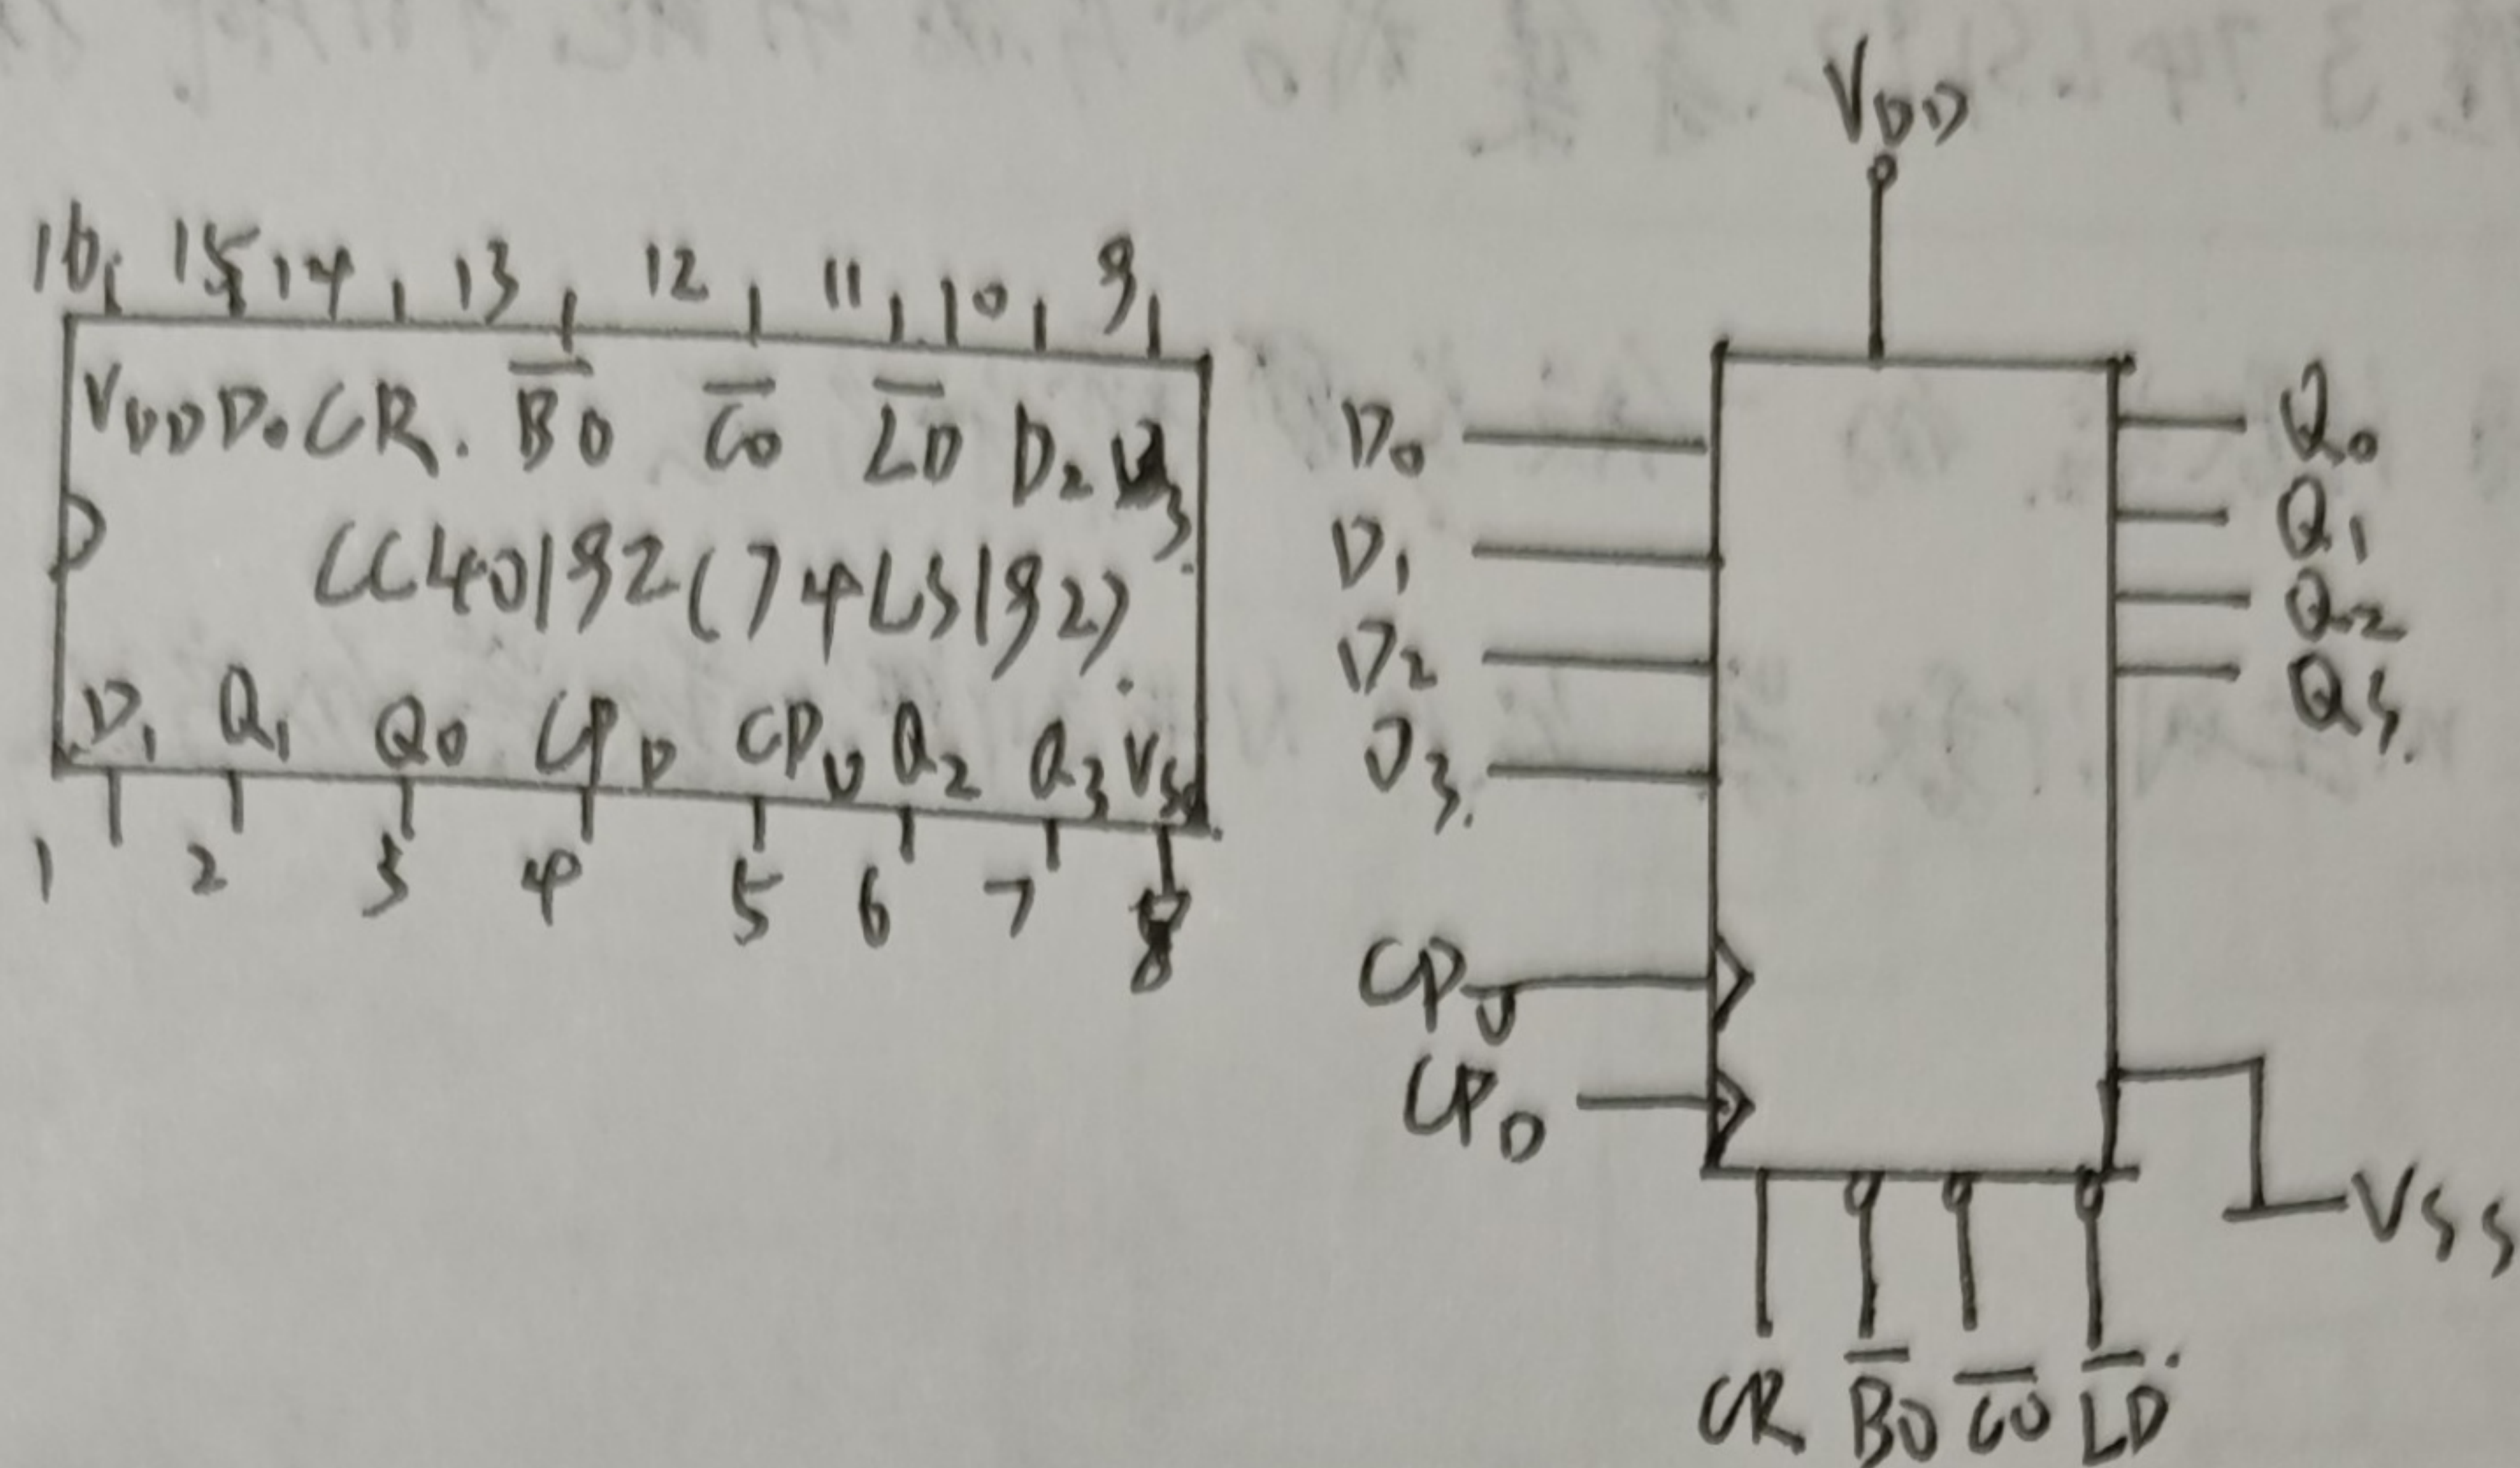 16 15 14 13 12 11 10 9
VDD D0 CR. B̅O̅ C̅O̅ L̅D̅ D2 D3.
CC40192(74LS192).
D1 Q1 Q0 CPD CPU Q2 Q3 VSS
1 2 3 4 5 6 7 8
VDD
D0
D1
D2
D3.
CPU
CPD
Q0
Q1
Q2
Q3.
VSS
CR B̅O̅ C̅O̅ L̅D̅